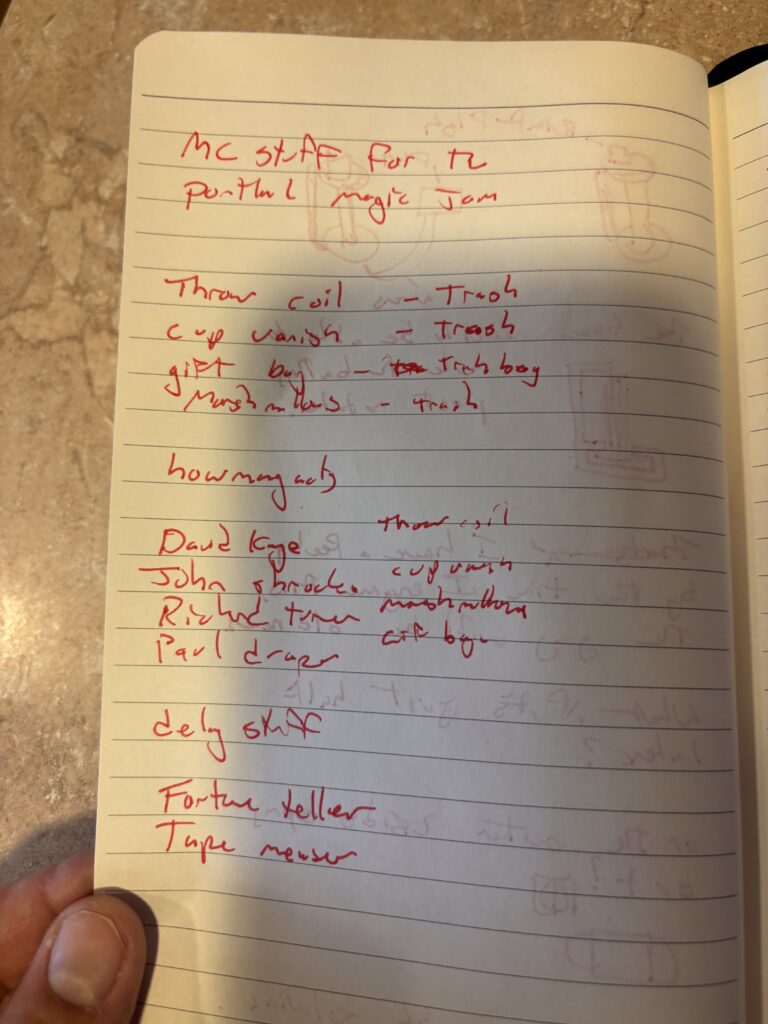 MC stuff for the
portland magic Jam
Throw coil - Trash
cup vanish - Trash
gift bag - Trsh bag
Marshmallows - trash
how many acts
David Kaye throw coil
John shrock cup vanish
Richard turner marshmallows
Paul draper gift bag
delay stuff
Fortune teller
Tape measur